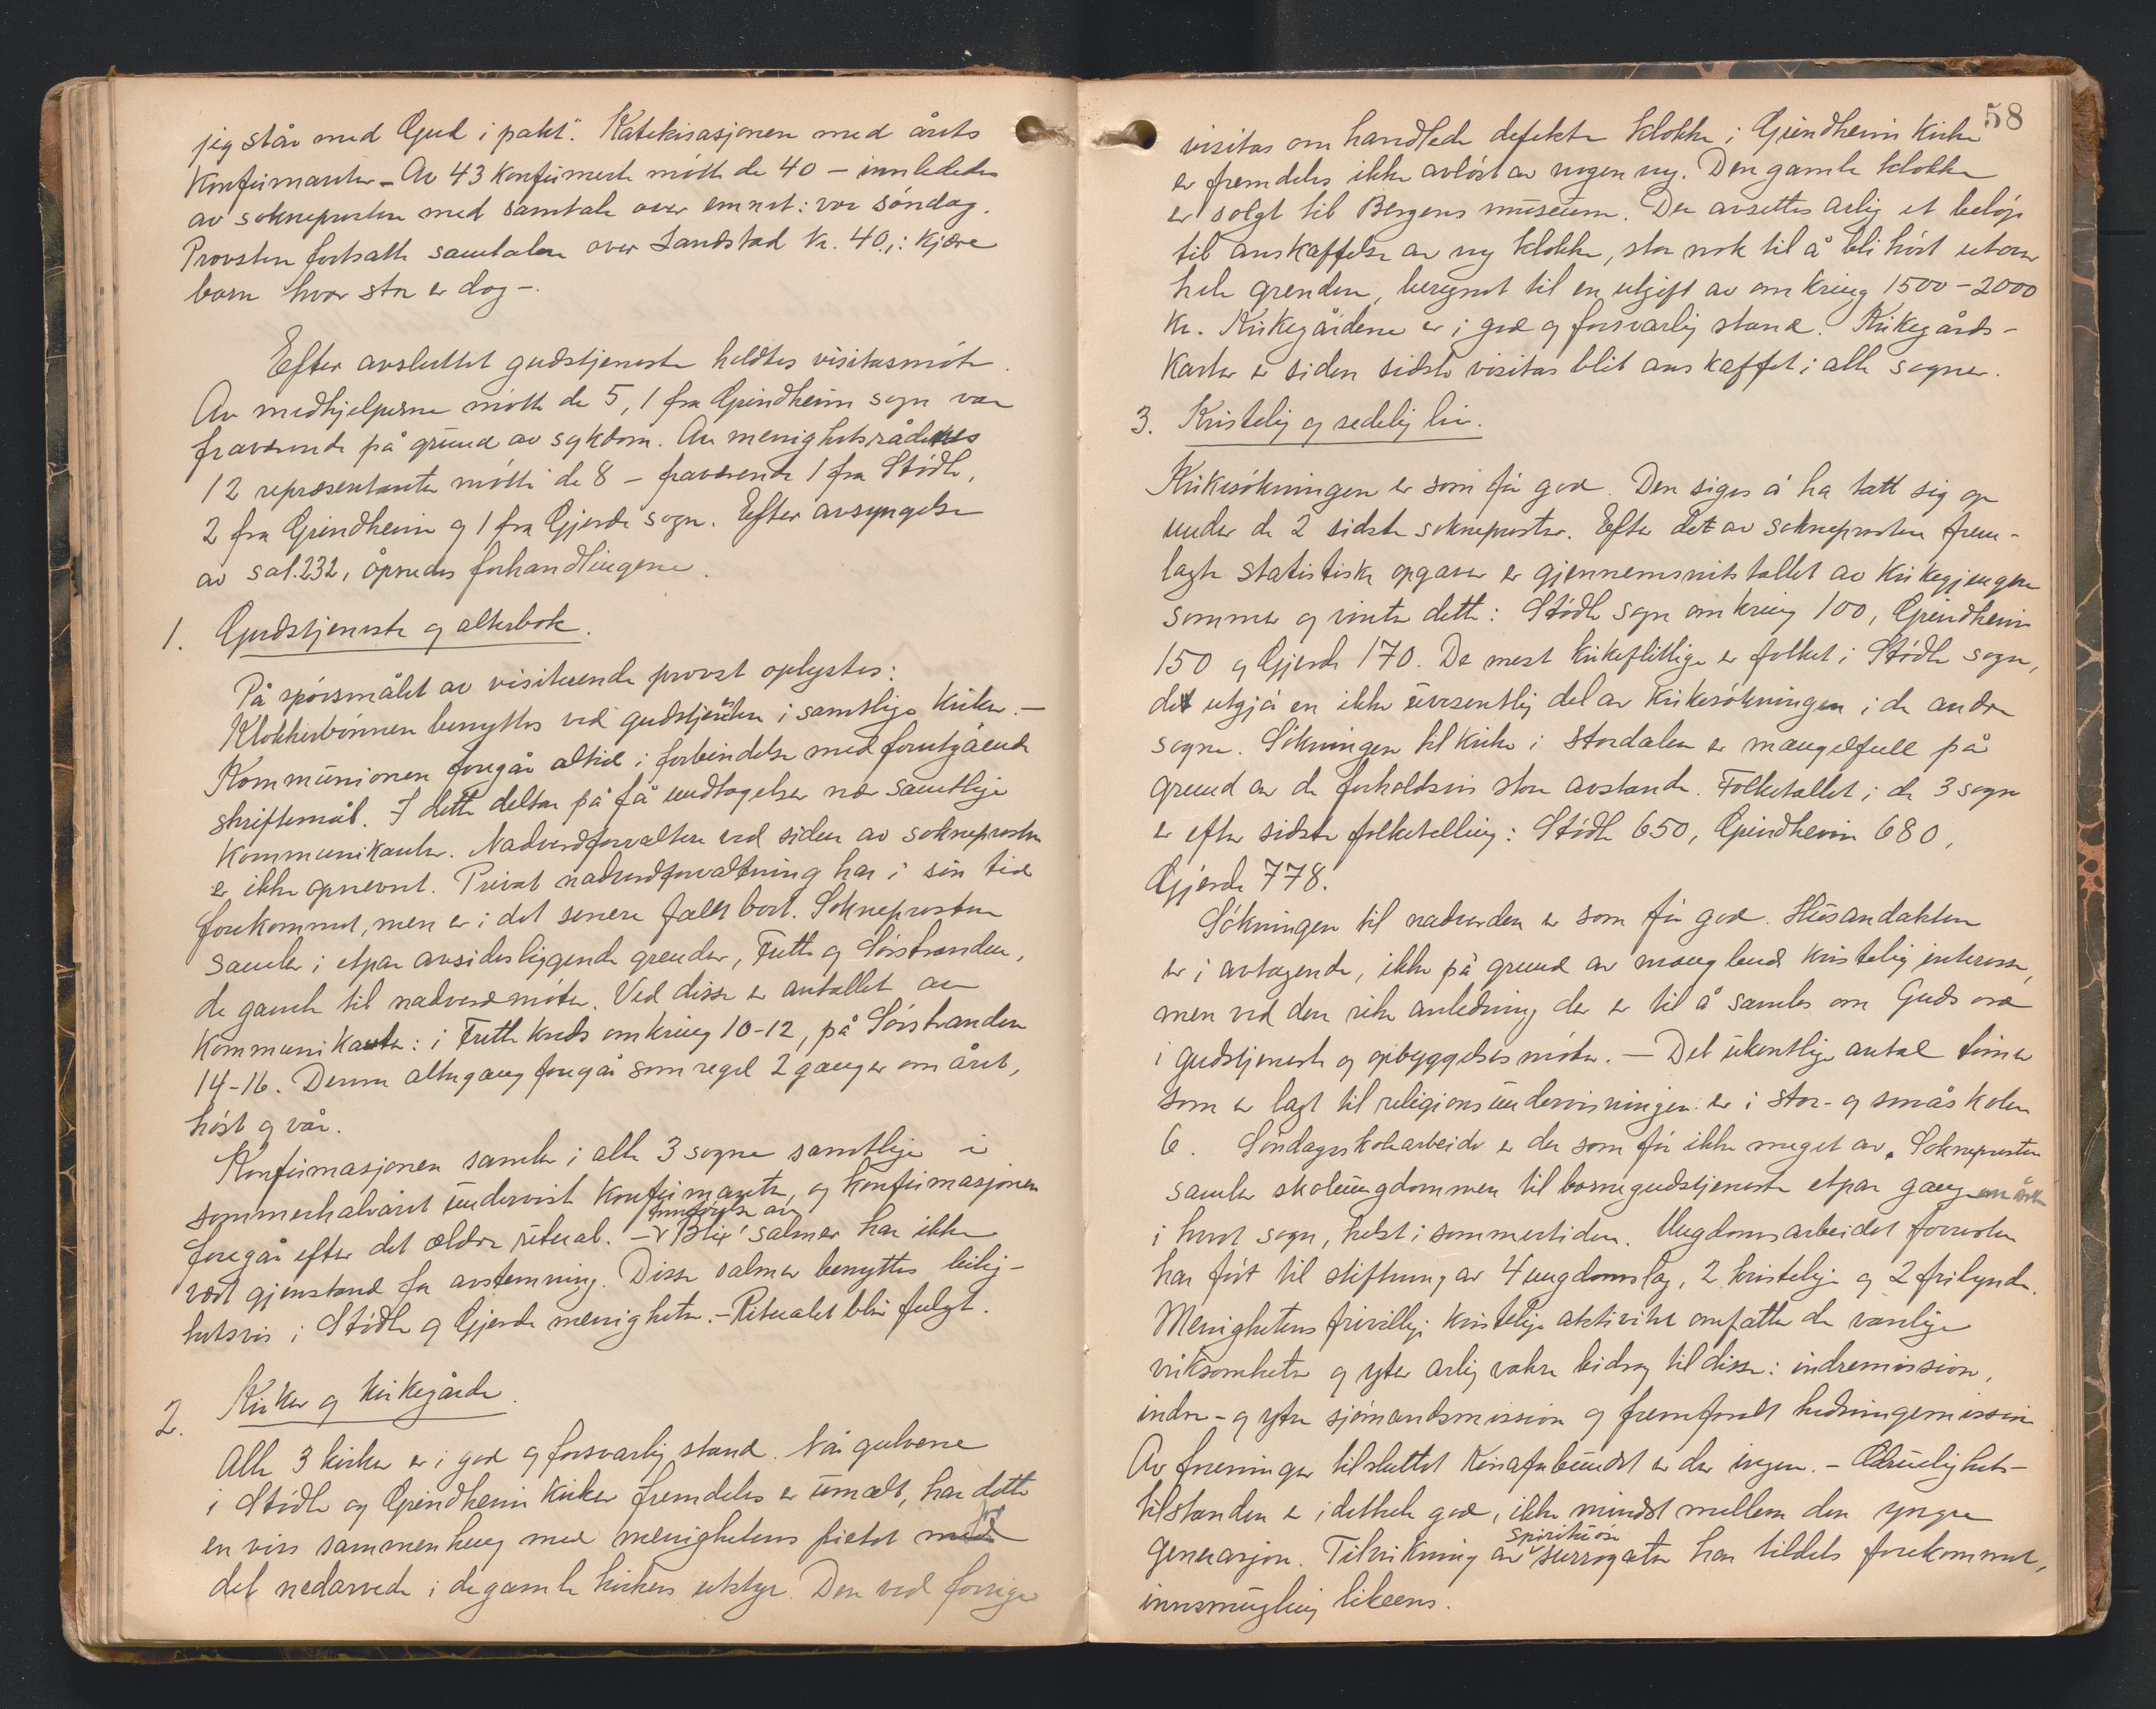 jeg står med Gud i pakt". Katekisasjonen med årets
Konfirmanter – Av 43 konfirmerte møtte de 40 – innlededes
av sokneprosten med samtale over emnet: vor søndag.
Provsten fortsatte samtalen over Landstad Nr. 40,: Kjære
barn hvor stor er dog –.
Efter avsluttet gudstjeneste holdtes visitasmøte.
Av medhjelperne møtte de 5, 1 fra Grindheim sogn var
fraværende på grund av sykdom. Av menighetsrådenes
12 representanter møtte de 8 – fraværende 1 fra Stødle,
2 fra Grindheim og 1 fra Gjerde sogn. Efter avsyngelse
av sal. 232, åpnedes forhandlingene.
1. Gudstjeneste og alterbok.
På spørsmålet av visiterende provst oplystes:
Klokkerbønnen benyttes ved gudstjenesten i samtlige kirker. –
Kommunionen foregår altid i forbindelse med forutgående
skriftemål. I dette deltar på få undtagelser nær samtlige
Kommunikanter. Nadverdforvaltere ved siden av sokneprosten
er ikke opnevnt. Privat nadverdforvaltning har i sin tid
forekommet, men er i det senere falt bort. Sokneprosten
samler i etpar avsidesliggende grender, Frette og Sørstranden,
de gamle til nadverdmøter. Ved disse er antallet av
Kommunikanter: i Frette kreds omkring 10-12, på Sørstranden
14-16. Denne altergang foregår som regel 2 ganger om året,
høst og vår.
Konfirmasjonen samler i alle 3 sogne samtlige i
sommerhalvåret undervist konfirmanter, og konfirmasjonen
foregår efter det ældre ritual. – Innførelse av Blix' salmer har ikke
vært gjenstand for avstemning. Disse salmer benyttes leilig-
hetsvis i Stødle og Gjerde menigheter. – Ritualet blir fulgt.
2. Kirker og kirkegårde.
Alle 3 kirker er i god og forsvarlig stand. Når gulvene
i Stødle og Grindheim kirker fremdeles er umalt, har dette
en viss sammenheng med menighetens pietet for
det nedarvede i de gamle kirkers utstyr. Den ved forrige
58
visitas omhandlede defekte klokke i Grindheim Kirke
er fremdeles ikke avløst av nogen ny. Den gamle klokke
er solgt til Bergens museum. Der avsettes årlig et beløp
til anskaffelse av ny klokke, stor nok til å bli hørt utover
hele grenden, beregnet til en utgift av omkring 1500 – 2000
kr. Kirkegårdene er i god og forsvarlig stand. Kirkegårds-
karter er siden sidste visitas blit anskaffet i alle sogner.
3. Kristelig og sedelig liv.
Kirkesøkningen er som før god. Den siges å ha tatt sig op
under de 2 sidste sokneprester. Efter det av sokneprosten frem-
lagte statistiske opgaver er gjennemsnitstallet av kirkegjengere
sommer og vinter dette: Stødle sogn omkring 100, Grindheim
150 og Gjerde 170. De mest kirkeflittige er folket i Stødle sogn,
det utgjør en ikke uvesentlig del av kirkesøkningen i de andre
sogne. Søkningen til kirke i Stordalen er mangelfull på
grund av de forholdsvis store avstande. Folketallet i de 3 sogne
er efter sidste folketelling: Stødle 650, Grindheim 680,
Gjerde 778.
Søkningen til nadverden er som før god. Husandakten
er i avtagende, ikke på grund av manglende kristelig interesse,
men ved den rike anledning der er til å samles om Guds ord
i gudstjeneste og opbyggelsesmøter. – Det ukentlige antal timer
som er lagt til religionsundervisningen er i stor- og småskolen
6. Søndagsskolearbeide er der som før ikke meget av. Sokneprosten
samler skoleungdommen til barnegudstjeneste etpar ganger om året
i hvert sogn, helst i sommertiden. Ungdomsarbeidet forresten
har ført til stiftning av 4 ungdomslag, 2 kristelige og 2 frilynde.
Menighetens frivillige kristelige aktivitet omfatter de vanlige
virksomheter og yter årlig vakre bidrag til disse: indremission,
indre- og ytre sjømandsmission og fremforalt hedningemission
Av foreninger tilsluttet Kinaforbundet er der ingen. – Ædruelighets-
tilstanden er i dethele god, ikke mindst mellem den yngre
generasjon. Tilvirkning av spirituøse surrogater har tildels forekommet,
innsmugling likeens.